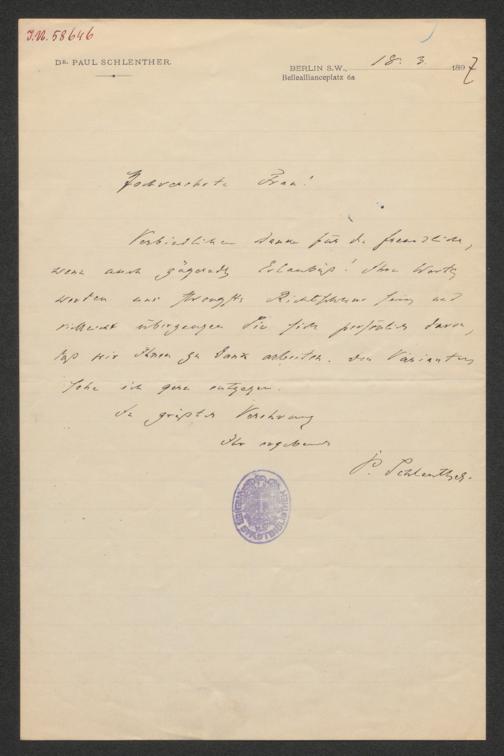 I.N. 58646
DR. PAUL SCHLENTHER.
BERLIN S.W., 18. 3. 1897
Bellealliancéplatz 6a
Hochverehrte Frau!
Verbindlichen Dank für die freundliche,
wenn auch zögernde Erlaubniß! Ihre Worte
werden uns strengste Richtschnur sein und
vielleicht überzeugen Sie sich persönlich davon,
daß wir Ihnen zu Dank arbeiten. Den Varianten
sehe ich gern entgegen.
In größter Verehrung
Ihr ergebener
P. Schlenther.